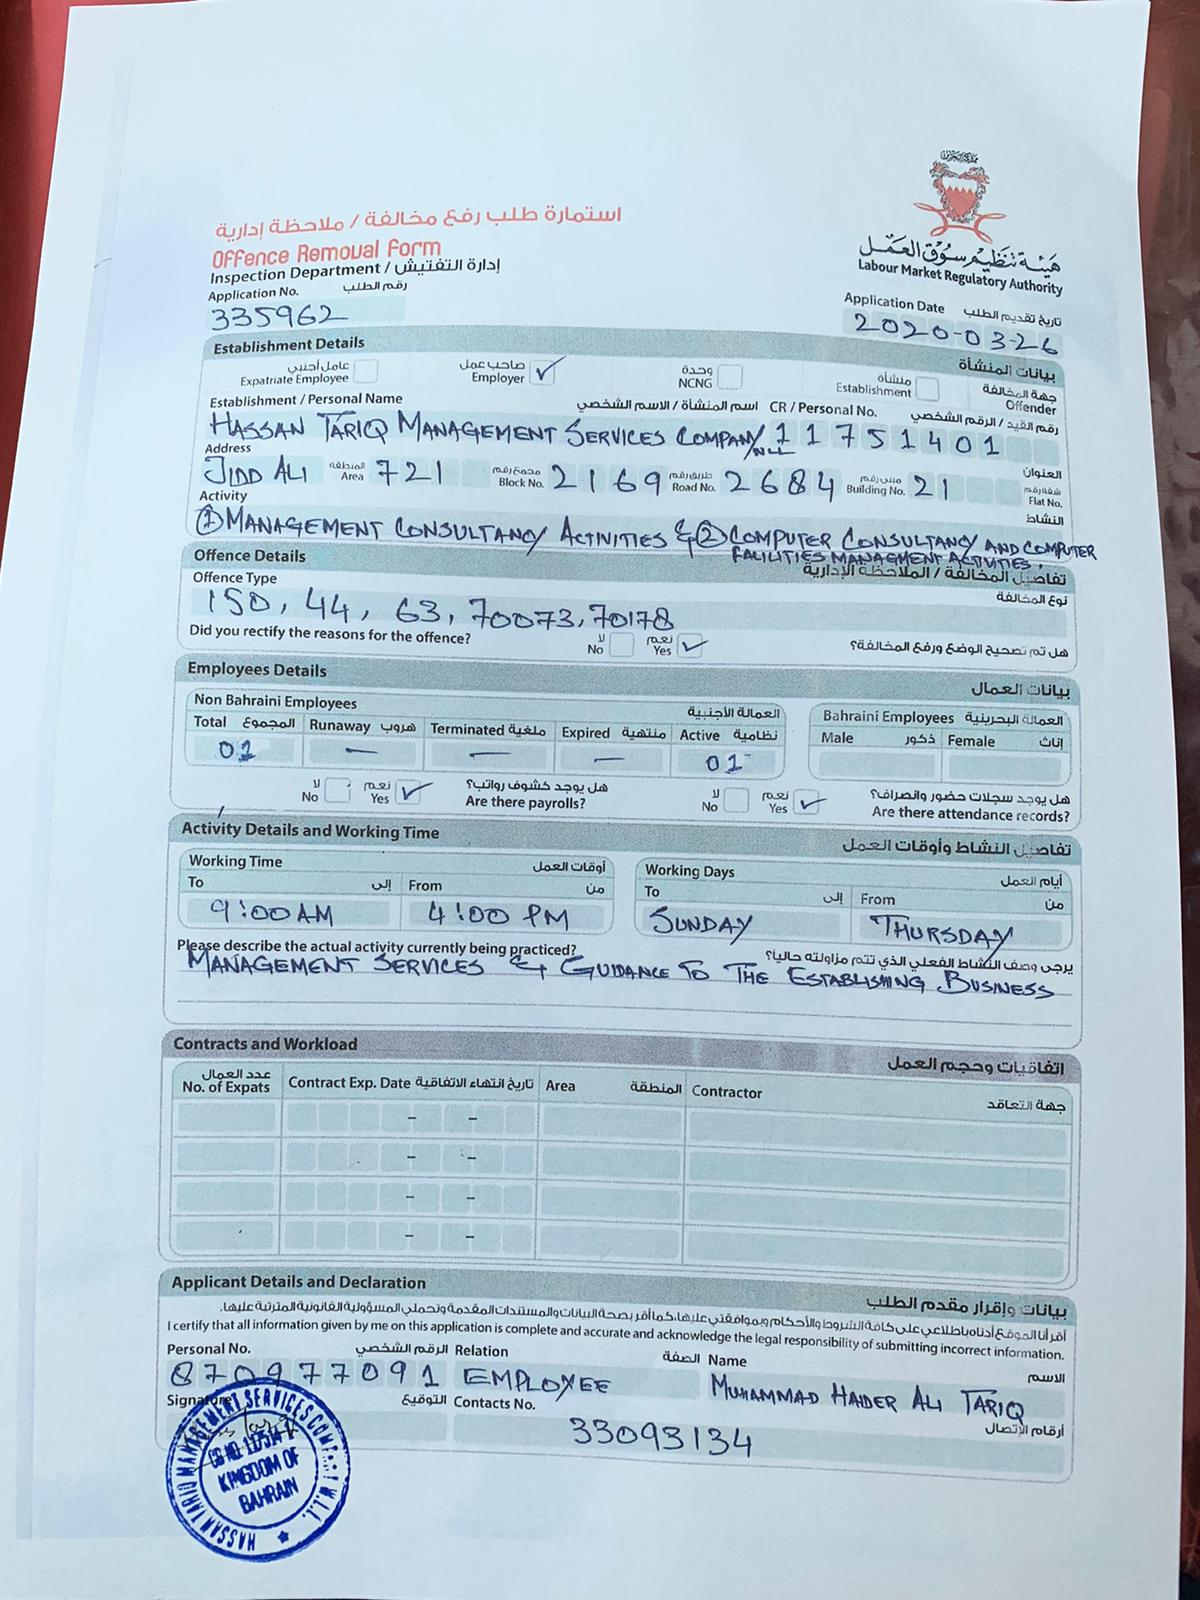 مملكة البحرين
هيئة تنظيم سوق العمل
Labour Market Regulatory Authority
استمارة طلب رفع مخالفة / ملاحظة إدارية
Offence Removal Form
Inspection Department / إدارة التفتيش
Application No. رقم الطلب
335962
Application Date تاريخ تقديم الطلب
2020-03-26
Establishment Details بيانات المنشأة
عامل أجنبي Expatriate Employee صاحب عمل Employer ✓ وحدة NCNG منشأة Establishment جهة المخالفة Offender
Establishment / Personal Name اسم المنشأة / الاسم الشخصي CR / Personal No. رقم القيد / الرقم الشخصي
HASSAN TARIQ MANAGEMENT SERVICES COMPANY WLL 11751401
Address العنوان
JIDD ALI المنطقة Area 721 مجمع رقم Block No. 2169 طريق رقم Road No. 2684 مبنى رقم Building No. 21 شقة رقم Flat No.
Activity النشاط
① MANAGEMENT CONSULTANCY ACTIVITIES & ② COMPUTER CONSULTANCY AND COMPUTER
FALILITIES MANAGMENT ACTIVITIES.
Offence Details تفاصيل المخالفة / الملاحظة الإدارية
Offence Type نوع المخالفة
150, 44, 63, 70073, 70178
Did you rectify the reasons for the offence? لا No نعم Yes ✓ هل تم تصحيح الوضع ورفع المخالفة؟
Employees Details بيانات العمال
Non Bahraini Employees العمالة الأجنبية Bahraini Employees العمالة البحرينية
Total المجموع Runaway هروب Terminated ملغية Expired منتهية Active نظامية Male ذكور Female إناث
01 — — — 01
لا No نعم Yes ✓ هل يوجد كشوف رواتب؟ Are there payrolls? لا No نعم Yes ✓ هل يوجد سجلات حضور وانصراف؟ Are there attendance records?
Activity Details and Working Time تفاصيل النشاط وأوقات العمل
Working Time أوقات العمل Working Days أيام العمل
To إلى From من To إلى From من
9:00 AM 4:00 PM SUNDAY THURSDAY
Please describe the actual activity currently being practiced? يرجى وصف النشاط الفعلي الذي تتم مزاولته حالياً؟
MANAGEMENT SERVICES & GUIDANCE TO THE ESTABLISHING BUSINESS
Contracts and Workload اتفاقيات وحجم العمل
عدد العمال No. of Expats Contract Exp. Date تاريخ انتهاء الاتفاقية Area المنطقة Contractor جهة التعاقد
- -
- -
- -
- -
Applicant Details and Declaration بيانات وإقرار مقدم الطلب
أقر أنا الموقع أدناه باطلاعي على كافة الشروط والأحكام وبموافقتي عليها، كما أقر بصحة البيانات والمستندات المقدمة وتحملي المسؤولية القانونية المترتبة عليها.
I certify that all information given by me on this application is complete and accurate and acknowledge the legal responsibility of submitting incorrect information.
Personal No. الرقم الشخصي Relation الصفة Name الاسم
870977091 EMPLOYEE MUHAMMAD HAIDER ALI TARIQ
Signature التوقيع Contacts No. أرقام الإتصال
33093134
HASSAN TARIQ MANAGEMENT SERVICES COMPANY W.L.L.
KINGDOM OF
BAHRAIN